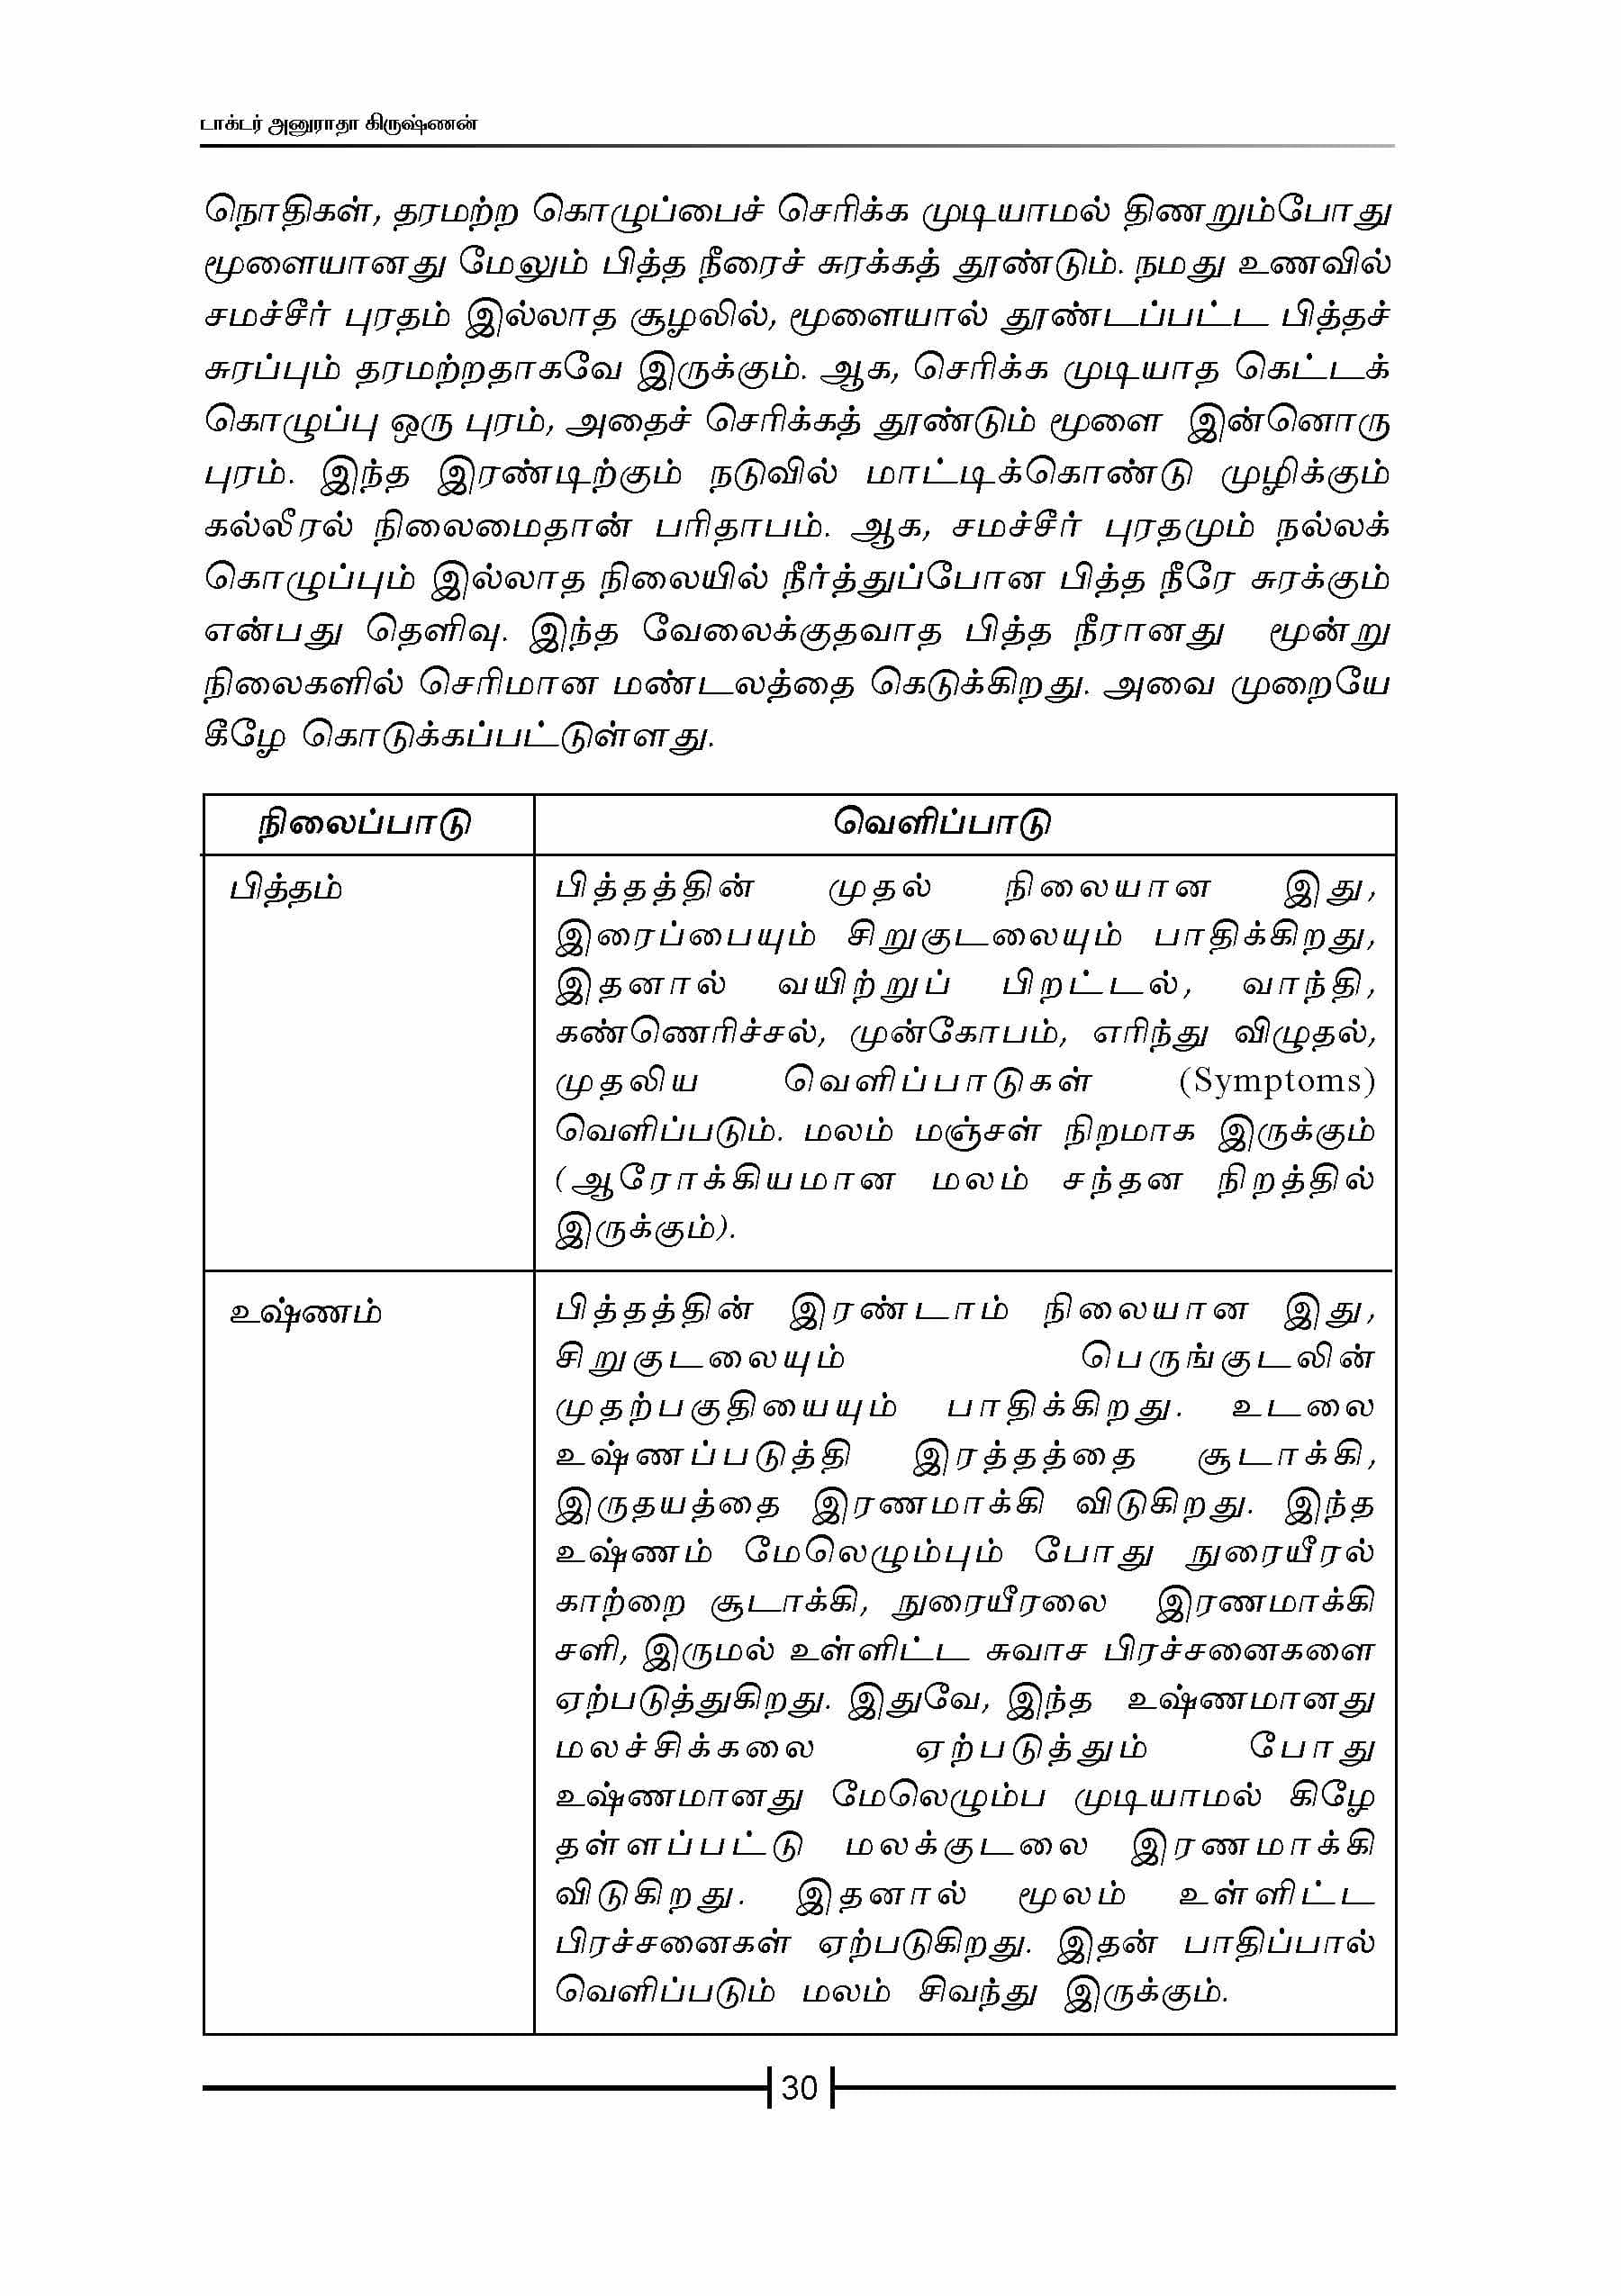 டாக்டர் அனுராதா கிருஷ்ணன்
நொதிகள், தரமற்ற கொழுப்பைச் செரிக்க முடியாமல் திணறும்போது
மூளையானது மேலும் பித்த நீரைச் சுரக்கத் தூண்டும். நமது உணவில்
சமச்சீர் புரதம் இல்லாத சூழலில், மூளையால் தூண்டப்பட்ட பித்தச்
சுரப்பும் தரமற்றதாகவே இருக்கும். ஆக, செரிக்க முடியாத கெட்டக்
கொழுப்பு ஒரு புரம், அதைச் செரிக்கத் தூண்டும் மூளை இன்னொரு
புரம். இந்த இரண்டிற்கும் நடுவில் மாட்டிக்கொண்டு முழிக்கும்
கல்லீரல் நிலைமைதான் பரிதாபம். ஆக, சமச்சீர் புரதமும் நல்லக்
கொழுப்பும் இல்லாத நிலையில் நீர்த்துப்போன பித்த நீரே சுரக்கும்
என்பது தெளிவு. இந்த வேலைக்குதவாத பித்த நீரானது மூன்று
நிலைகளில் செரிமான மண்டலத்தை கெடுக்கிறது. அவை முறையே
கீழே கொடுக்கப்பட்டுள்ளது.
நிலைப்பாடு வெளிப்பாடு
பித்தம் பித்தத்தின் முதல் நிலையான இது,
இரைப்பையும் சிறுகுடலையும் பாதிக்கிறது,
இதனால் வயிற்றுப் பிறட்டல், வாந்தி,
கண்ணெரிச்சல், முன்கோபம், எரிந்து விழுதல்,
முதலிய வெளிப்பாடுகள் (Symptoms)
வெளிப்படும். மலம் மஞ்சள் நிறமாக இருக்கும்
(ஆரோக்கியமான மலம் சந்தன நிறத்தில்
இருக்கும்).
உஷ்ணம் பித்தத்தின் இரண்டாம் நிலையான இது,
சிறுகுடலையும் பெருங்குடலின்
முதற்பகுதியையும் பாதிக்கிறது. உடலை
உஷ்ணப்படுத்தி இரத்தத்தை சூடாக்கி,
இருதயத்தை இரணமாக்கி விடுகிறது. இந்த
உஷ்ணம் மேலெழும்பும் போது நுரையீரல்
காற்றை சூடாக்கி, நுரையீரலை இரணமாக்கி
சளி, இருமல் உள்ளிட்ட சுவாச பிரச்சனைகளை
ஏற்படுத்துகிறது. இதுவே, இந்த உஷ்ணமானது
மலச்சிக்கலை ஏற்படுத்தும் போது
உஷ்ணமானது மேலெழும்ப முடியாமல் கிழே
தள்ளப்பட்டு மலக்குடலை இரணமாக்கி
விடுகிறது. இதனால் மூலம் உள்ளிட்ட
பிரச்சனைகள் ஏற்படுகிறது. இதன் பாதிப்பால்
வெளிப்படும் மலம் சிவந்து இருக்கும்.
30